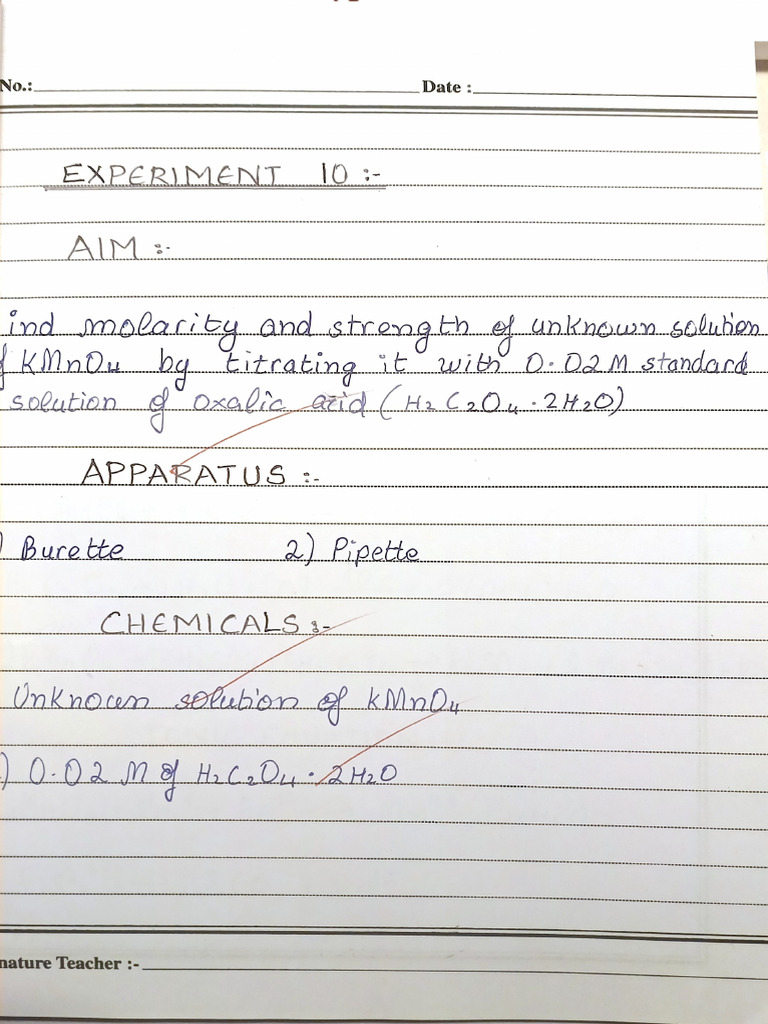 No.: Date :
EXPERIMENT 10 :-
AIM :-
ind molarity and strength of unknown solution
f KMnO₄ by titrating it with 0.02M standard
solution of oxalic acid (H₂C₂O₄·2H₂O)
APPARATUS :-
) Burette 2) Pipette
CHEMICALS :-
Unknown solution of KMnO₄
) 0.02 M of H₂C₂O₄·2H₂O
nature Teacher :-